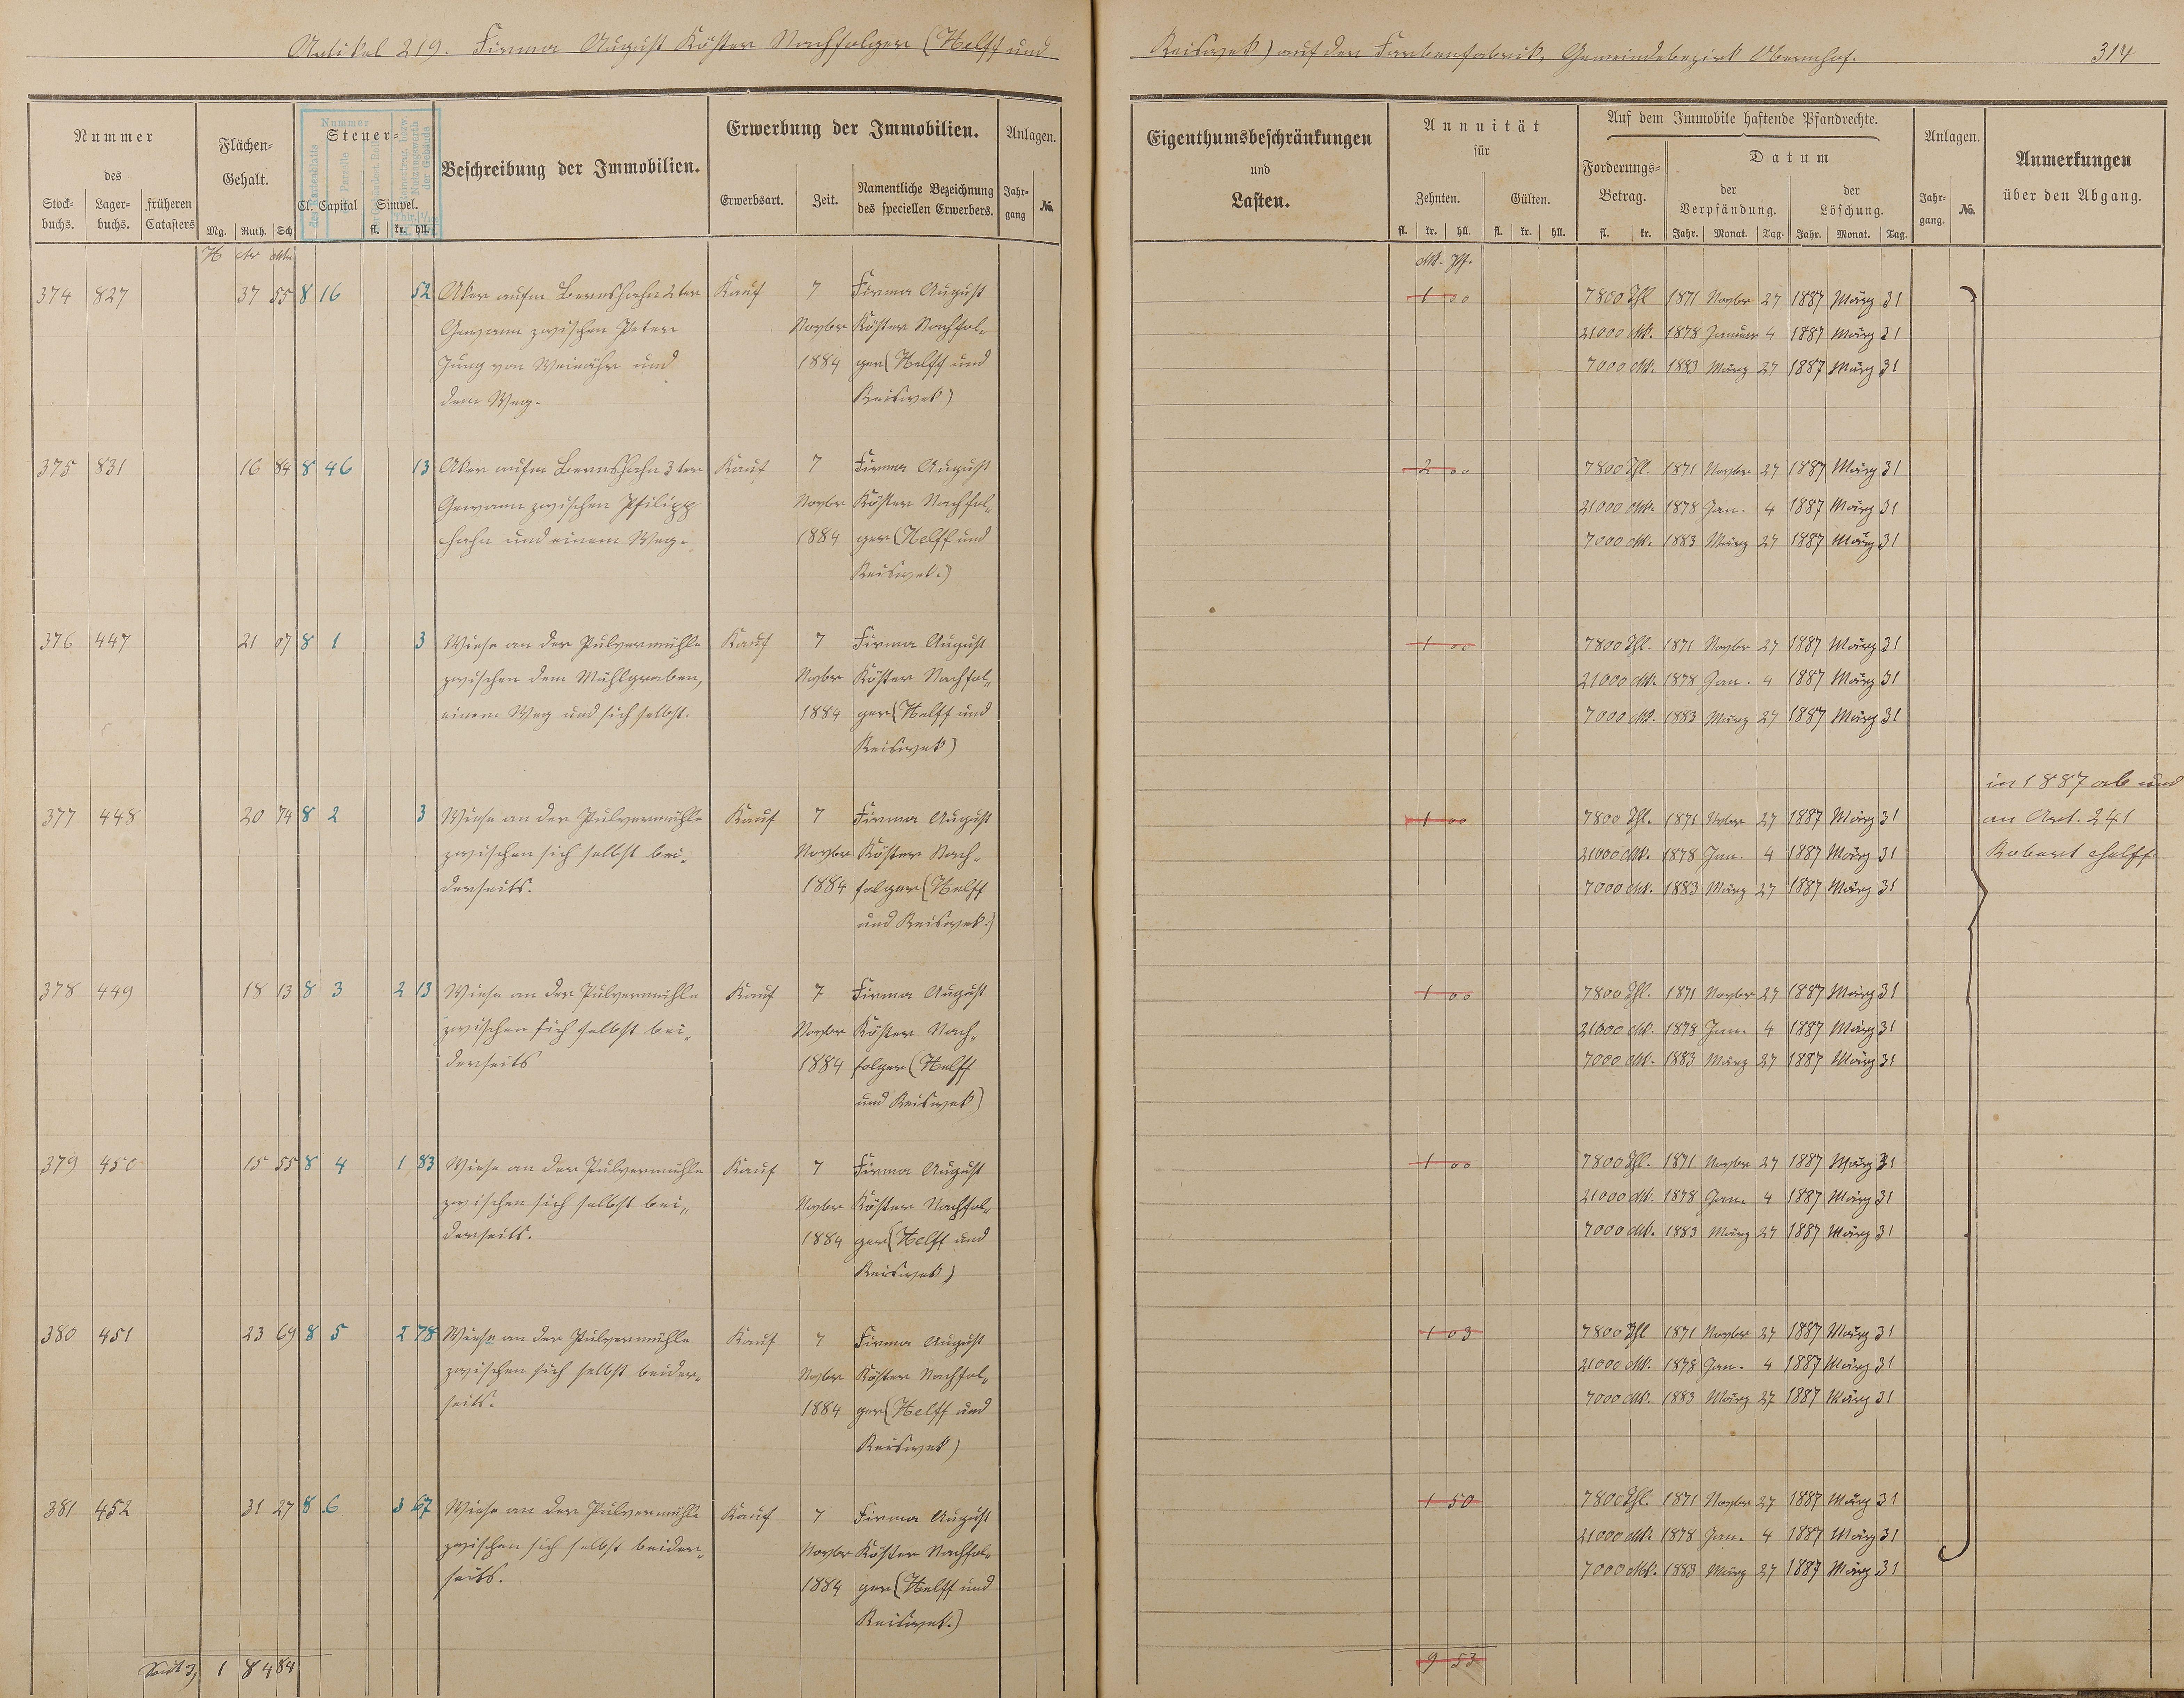 Artikel 219. Firma August Köster Nachfolger (Helff und
Reiswek) auf der Farbenfabrik, Gemeindebezirk Obernhof. 314
Nummer
des
Stock-
buchs.
Lager-
buchs.
früheren
Catasters
Flächen-
Gehalt.
Mg. Ruth. Sch
H Ar Mtr
Steuer-
Cl. Capital Simpel.
fl. kr. hll.
Nummer
des Kartenblatts
der Parzelle
der Gebäude
Beschreibung der Immobilien.
Erwerbung der Immobilien.
Erwerbsart. Zeit.
Namentliche Bezeichnung
des speciellen Erwerbers.
Anlagen.
Jahr-
gang
No.
Eigenthumsbeschränkungen
und
Lasten.
Annuität
für
Zehnten. Gülten.
fl. kr. hll. fl. kr. hll.
Mk. Pf.
Auf dem Immobile haftende Pfandrechte.
Forderungs-
Betrag.
fl. kr.
Datum
der
Verpfändung.
Jahr. Monat. Tag.
der
Löschung.
Jahr. Monat. Tag.
Anlagen.
Jahr-
gang.
No.
Anmerkungen
über den Abgang.
374 827 37 55 8 16 52 Aker aufm Bernshahn 2ter Kauf 7 Firma August 1 00 7800 Thl 1871 Novbr 27 1887 März 31
Gewann zwischen Peter Novbr Köster Nachfol- 21000 Mk. 1878 Januar 4 1887 März 31
Jung von Weinähr und 1884 ger (Helff und 7000 Mk. 1883 März 27 1887 März 31
dem Weg. Reiswek)
375 831 16 84 8 46 13 Aker aufm Bernshahn 3ter Kauf 7 Firma August 2 00 7800 Thl. 1871 Novbr 27 1887 März 31
Gewann zwischen Philipp Novbr Köster Nachfol- 21000 Mk. 1878 Jan. 4 1887 März 31
Hahn und einem Weg. 1884 ger (Helff und 7000 Mk. 1883 März 27 1887 März 31
Reiswek.)
376 447 21 07 8 1 3 Wiese an der Pulvermühle Kauf 7 Firma August 1 00 7800 Thl. 1871 Novbr 27 1887 März 31
zwischen dem Mühlgraben, Novbr Köster Nachfol- 21000 Mk. 1878 Jan. 4 1887 März 31
einem Weg und sich selbst. 1884 ger (Helff und 7000 Mk. 1883 März 27 1887 März 31
Reiswek)
in 1887 ab und
377 448 20 74 8 2 3 Wiese an der Pulvermühle Kauf 7 Firma August 1 00 7800 Thl. 1871 Novbr 27 1887 März 31 an Art. 241
zwischen sich selbst bei- Novbr Köster Nach- 21000 Mk. 1878 Jan. 4 1887 März 31 Robert Helff
derseits. 1884 folger (Helff 7000 Mk. 1883 März 27 1887 März 31
und Reiswek)
378 449 18 13 8 3 2 13 Wiese an der Pulvermühle Kauf 7 Firma August 1 00 7800 Thl. 1871 Novbr 27 1887 März 31
zwischen sich selbst bei- Novbr Köster Nach- 21000 Mk. 1878 Jan. 4 1887 März 31
derseits 1884 folger (Helff 7000 Mk. 1883 März 27 1887 März 31
und Reiswek)
379 450 15 55 8 4 1 83 Wiese an der Pulvermühle Kauf 7 Firma August 1 00 7800 Thl. 1871 Novbr 27 1887 März 31
zwischen sich selbst bei- Novbr Köster Nachfol- 21000 Mk. 1878 Jan. 4 1887 März 31
derseits. 1884 ger (Helff und 7000 Mk. 1883 März 27 1887 März 31
Reiswek)
380 451 23 69 8 5 2 78 Wiese an der Pulvermühle Kauf 7 Firma August 1 03 7800 Thl 1871 Novbr 27 1887 März 31
zwischen sich selbst beider- Novbr Köster Nachfol- 21000 Mk. 1878 Jan. 4 1887 März 31
seits. 1884 ger (Helff und 7000 Mk. 1883 März 27 1887 März 31
Reiswek)
381 452 31 27 8 6 3 67 Wiese an der Pulvermühle Kauf 7 Firma August 1 50 7800 Thl. 1871 Novbr 27 1887 März 31
zwischen sich selbst beider- Novbr Köster Nachfol- 21000 Mk. 1878 Jan. 4 1887 März 31
seits. 1884 ger (Helff und 7000 Mk. 1883 März 27 1887 März 31
Reiswek.)
1 84 84 9 53